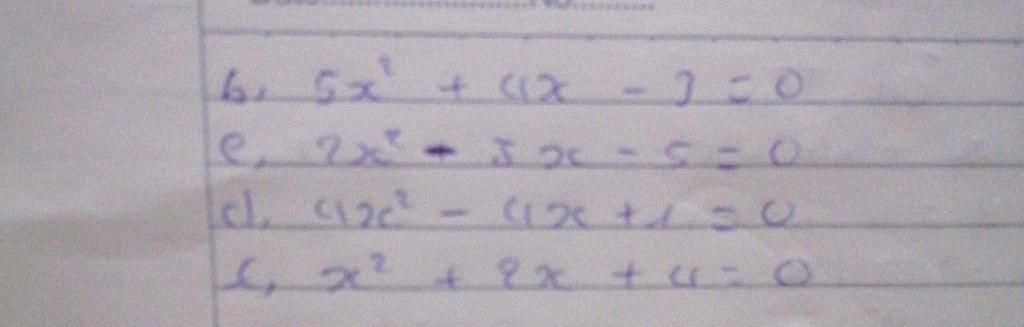 b, 5x² + 4x - 3 = 0
e, 2x² - 3x - 5 = 0
d. 4x² - 4x + 1 = 0
c, x² + 2x + 4 = 0